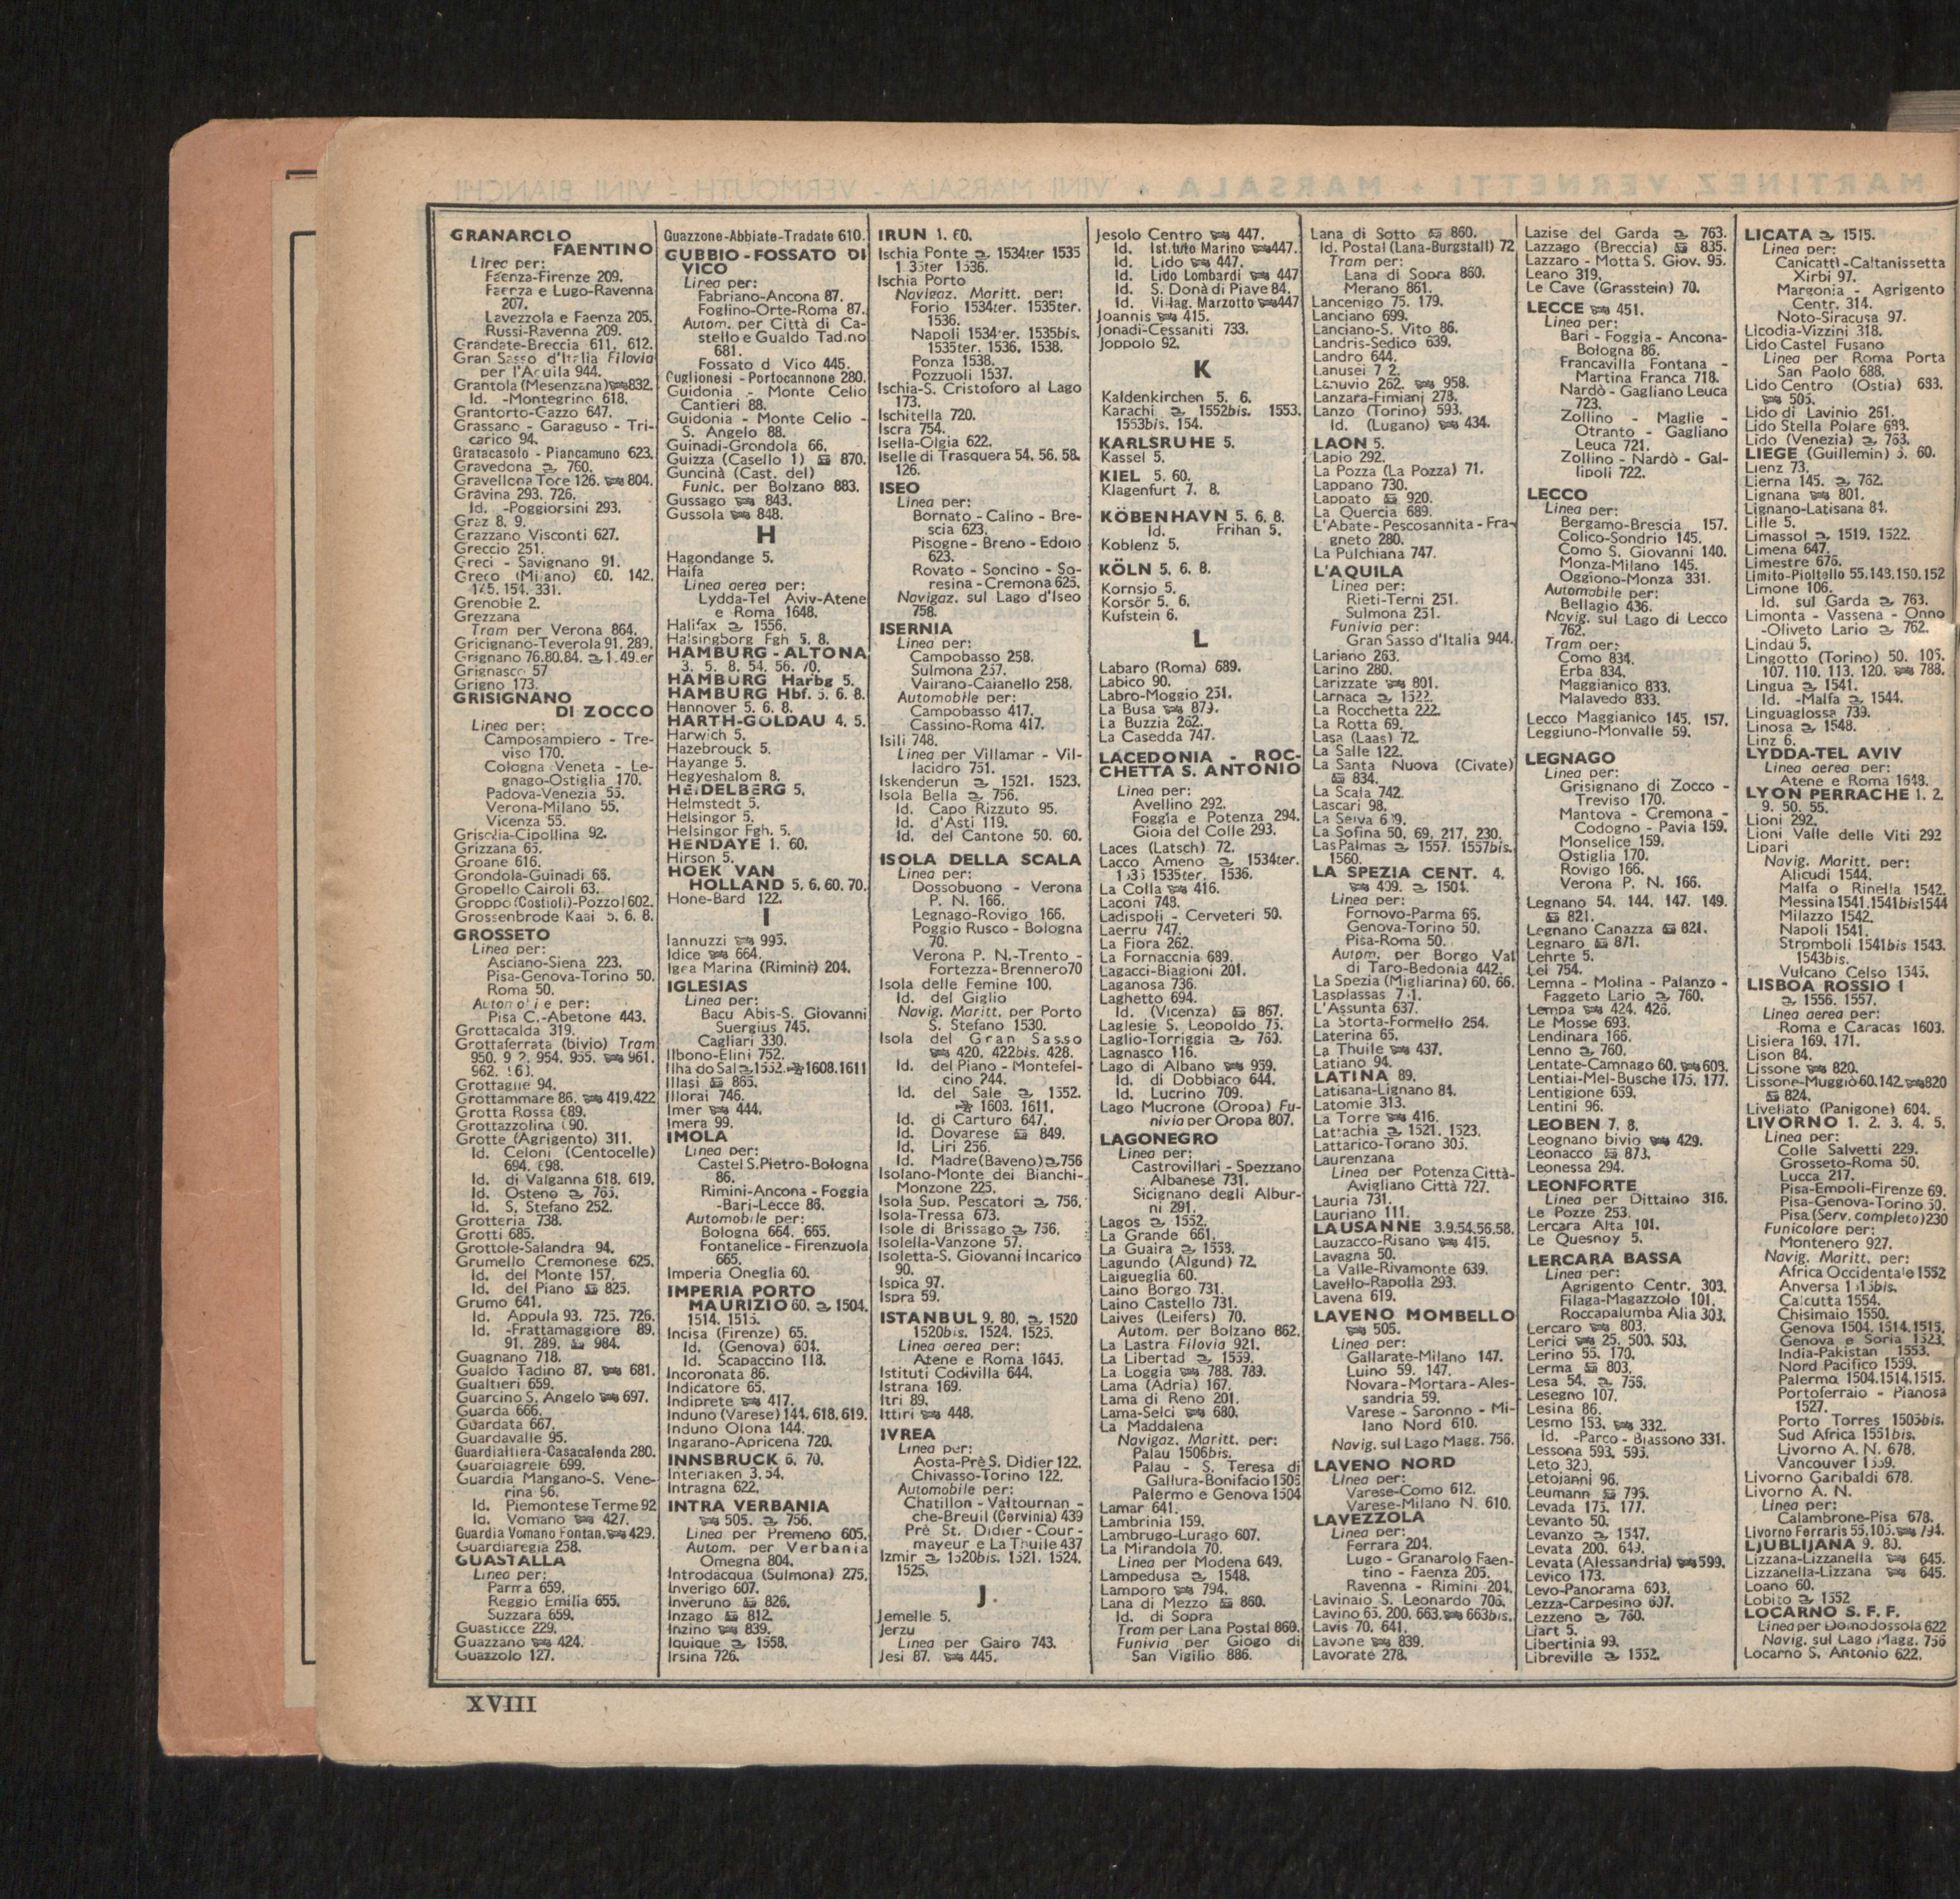 GRANAROLO
FAENTINO
Linea per:
Faenza-Firenze 209.
Faenza e Lugo-Ravenna
207.
Lavezzola e Faenza 205.
Russi-Ravenna 209.
Grandate-Breccia 611, 612.
Gran Sasso d'Italia Filovia
per l'Aquila 944.
Grantola (Mesenzana) 832.
Id. -Montegrino 618.
Grantorto-Gazzo 647.
Grassano - Garaguso - Tri-
carico 94.
Gratacasolo - Piancamuno 623.
Gravedona 760.
Gravellona Toce 126. 804.
Gravina 293. 726.
Id. -Poggiorsini 293.
Graz 8. 9.
Grazzano Visconti 627.
Greccio 251.
Greci - Savignano 91.
Greco (Milano) 60. 142.
145. 154. 331.
Grenoble 2.
Grezzana
Tram per Verona 864.
Gricignano-Teverola 91. 289.
Grignano 76.80.84.
Grignasco 57
Grigno 173.
GRISIGNANO
DI ZOCCO
Linea per:
Camposampiero - Tre-
viso 170.
Cologna Veneta - Le-
gnago-Ostiglia 170.
Padova-Venezia 55.
Verona-Milano 55.
Vicenza 55.
Grisolia-Cipollina 92.
Grizzana 65.
Groane 616.
Grondola-Guinadi 66.
Gropello Cairoli 63.
Groppo (Costioli)-Pozzol 602.
Grossenbrode Kaai 5. 6. 8.
GROSSETO
Linea per:
Asciano-Siena 223.
Pisa-Genova-Torino 50.
Roma 50.
Automobile per:
Pisa C.-Abetone 443.
Grottacalda 319.
Grottaferrata (bivio) Tram
950. 954. 955. 961.
962.
Grottaglie 94.
Grottammare 86. 419.422
Grotta Rossa 689.
Grottazzolina 690.
Grotte (Agrigento) 311.
Id. Celoni (Centocelle)
694. 698.
Id. di Valganna 618. 619.
Id. Osteno 765.
Id. S. Stefano 252.
Grotteria 738.
Grotti 685.
Grottole-Salandra 94.
Grumello Cremonese 625.
Id. del Monte 157.
Id. del Piano 825.
Grumo 641.
Id. Appula 93. 725. 726.
Id. -Frattamaggiore 89.
91. 289. 984.
Guagnano 718.
Gualdo Tadino 87. 681.
Gualtieri 659.
Guarcino S. Angelo 697.
Guarda 666.
Guardata 667.
Guardavalle 95.
Guardialfiera-Casacalenda 280.
Guardiagrele 699.
Guardia Mangano-S. Vene-
rina 96.
Id. Piemontese Terme 92
Id. Vomano 427.
Guardia Vomano Fontan. 429.
Guardiaregia 258.
GUASTALLA
Linea per:
Parma 659.
Reggio Emilia 655.
Suzzara 659.
Guasticce 229.
Guazzano 424.
Guazzolo 127.
Guazzone-Abbiate-Tradate 610.
GUBBIO - FOSSATO DI
VICO
Linea per:
Fabriano-Ancona 87.
Foglino-Orte-Roma 87.
Autom. per Città di Ca-
stello e Gualdo Tadino
681.
Fossato d Vico 445.
Guglionesi - Portocannone 280.
Guidonia - Monte Celio
Cantieri 88.
Guidonia - Monte Celio -
S. Angelo 88.
Guinadi-Grondola 66.
Guizza (Casello 1) 870.
Guncinà (Cast. del)
Funic. per Bolzano 883.
Gussago 843.
Gussola 848.
H
Hagondange 5.
Haifa
Linea aerea per:
Lydda-Tel Aviv-Atene
e Roma 1648.
Halifax 1556.
Halsingborg Fgh 5. 8.
HAMBURG - ALTONA
3. 5. 8. 54. 56. 70.
HAMBURG Harbg 5.
HAMBURG Hbf. 5. 6. 8.
Hannover 5. 6. 8.
HARTH-GOLDAU 4. 5.
Harwich 5.
Hazebrouck 5.
Hayange 5.
Hegyeshalom 8.
HEIDELBERG 5.
Helmstedt 5.
Helsingor 5.
Helsingor Fgh. 5.
HENDAYE 1. 60.
Hirson 5.
HOEK VAN
HOLLAND 5. 6. 60. 70.
Hone-Bard 122.
I
Iannuzzi 995.
Idice 664.
Igea Marina (Rimini) 204.
IGLESIAS
Linea per:
Bacu Abis-S. Giovanni
Suergius 745.
Cagliari 330.
Ilbono-Elini 752.
Ilha do Sal 1552. 1608.1611
Illasi 865.
Illorai 746.
Imer 444.
Imera 99.
IMOLA
Linea per:
Castel S.Pietro-Bologna
86.
Rimini-Ancona - Foggia
-Bari-Lecce 86.
Automobile per:
Bologna 664. 665.
Fontanelice - Firenzuola
665.
Imperia Oneglia 60.
IMPERIA PORTO
MAURIZIO 60. 1504.
1514. 1515.
Incisa (Firenze) 65.
Id. (Genova) 601.
Id. Scapaccino 118.
Incoronata 86.
Indicatore 65.
Indiprete 417.
Induno (Varese) 144. 618. 619.
Induno Olona 144.
Ingarano-Apricena 720.
INNSBRUCK 6. 70.
Interlaken 3. 54.
Intragna 622.
INTRA VERBANIA
505. 756.
Linea per Premeno 605.
Autom. per Verbania
Omegna 804.
Introdacqua (Sulmona) 275.
Inverigo 607.
Inveruno 826.
Inzago 812.
Inzino 839.
Iquique 1558.
Irsina 726.
IRUN 1. 60.
Ischia Ponte 1534ter 1535
1536.
Ischia Porto
Navigaz. Maritt. per:
Forio 1534ter. 1535ter.
1536.
Napoli 1534ter. 1535bis.
1535ter. 1536. 1538.
Ponza 1538.
Pozzuoli 1537.
Ischia-S. Cristoforo al Lago
173.
Ischitella 720.
Iscra 754.
Isella-Olgia 622.
Iselle di Trasquera 54. 56. 58.
126.
ISEO
Linea per:
Bornato - Calino - Bre-
scia 623.
Pisogne - Breno - Edolo
623.
Rovato - Soncino - So-
resina - Cremona 625.
Navigaz. sul Lago d'Iseo
758.
ISERNIA
Linea per:
Campobasso 258.
Sulmona 257.
Vairano-Caianello 258.
Automobile per:
Campobasso 417.
Cassino-Roma 417.
Isili 748.
Linea per Villamar - Vil-
lacidro 751.
Iskenderun 1521. 1523.
Isola Bella 756.
Id. Capo Rizzuto 95.
Id. d'Asti 119.
Id. del Cantone 50. 60.
ISOLA DELLA SCALA
Linea per:
Dossobuono - Verona
P. N. 166.
Legnago-Rovigo 166.
Poggio Rusco - Bologna
70.
Verona P. N.-Trento -
Fortezza-Brennero 70
Isola delle Femine 100.
Id. del Giglio
Navig. Maritt. per Porto
S. Stefano 1530.
Isola del Gran Sasso
420. 422bis. 428.
Id. del Piano - Montefel-
cino 244.
Id. del Sale 1552.
1603. 1611.
Id. di Carturo 647.
Id. Dovarese 849.
Id. Liri 256.
Id. Madre (Baveno) 756
Isolano-Monte dei Bianchi-
Monzone 225.
Isola Sup. Pescatori 756.
Isola-Tressa 673.
Isole di Brissago 756.
Isolella-Vanzone 57.
Isoletta-S. Giovanni Incarico
90.
Ispica 97.
Ispra 59.
ISTANBUL 9. 80. 1520
1520bis. 1524. 1525.
Linea aerea per:
Atene e Roma 1645.
Istituti Codivilla 644.
Istrana 169.
Itri 89.
Ittiri 448.
IVREA
Linea per:
Aosta-Prè S. Didier 122.
Chivasso-Torino 122.
Automobile per:
Chatillon - Valtournan -
che-Breuil (Cervinia) 439
Prè St. Didier - Cour -
mayeur e La Thuile 437
Izmir 1520bis. 1521. 1524.
1525.
J
Jemelle 5.
Jerzu
Linea per Gairo 743.
Jesi 87. 445.
Jesolo Centro 447.
Id. Istituto Marino 447.
Id. Lido 447.
Id. Lido Lombardi 447
Id. S. Donà di Piave 84.
Id. Villag. Marzotto 447
Joannis 415.
Jonadi-Cessaniti 733.
Joppolo 92.
K
Kaldenkirchen 5. 6.
Karachi 1552bis. 1553.
1553bis. 154.
KARLSRUHE 5.
Kassel 5.
KIEL 5. 60.
Klagenfurt 7. 8.
KÖBENHAVN 5. 6. 8.
Id. Frihan 5.
Koblenz 5.
KÖLN 5. 6. 8.
Kornsjo 5.
Korsör 5. 6.
Kufstein 6.
L
Labaro (Roma) 689.
Labico 90.
Labro-Moggio 251.
La Busa 879.
La Buzzia 262.
La Casedda 747.
LACEDONIA - ROC-
CHETTA S. ANTONIO
Linea per:
Avellino 292.
Foggia e Potenza 294.
Gioia del Colle 293.
Laces (Latsch) 72.
Lacco Ameno 1534ter.
1535 1535ter. 1536.
La Colla 416.
Laconi 748.
Ladispoli - Cerveteri 50.
Laerru 747.
La Fiora 262.
La Fornacchia 689.
Lagacci-Biagioni 201.
Laganosa 736.
Laghetto 694.
Id. (Vicenza) 867.
Laglesie S. Leopoldo 75.
Laglio-Torriggia 760.
Lagnasco 116.
Lago di Albano 959.
Id. di Dobbiaco 644.
Id. Lucrino 709.
Lago Mucrone (Oropa) Fu-
nivia per Oropa 807.
LAGONEGRO
Linea per:
Castrovillari - Spezzano
Albanese 731.
Sicignano degli Albur-
ni 291.
Lagos 1552.
La Grande 661.
La Guaira 1558.
Lagundo (Algund) 72.
Laigueglia 60.
Laino Borgo 731.
Laino Castello 731.
Laives (Leifers) 70.
Autom. per Bolzano 862.
La Lastra Filovia 921.
La Libertad 1559.
La Loggia 788. 789.
Lama (Adria) 167.
Lama di Reno 201.
Lama-Selci 680.
La Maddalena
Navigaz. Maritt. per:
Palau 1506bis.
Palau - S. Teresa di
Gallura-Bonifacio 1505
Palermo e Genova 1504
Lamar 641.
Lambrinia 159.
Lambrugo-Lurago 607.
La Mirandola 70.
Linea per Modena 649.
Lampedusa 1548.
Lamporo 794.
Lana di Mezzo 860.
Id. di Sopra
Tram per Lana Postal 860.
Funivia per Giogo di
San Vigilio 886.
Lana di Sotto 860.
Id. Postal (Lana-Burgstall) 72
Tram per:
Lana di Sopra 860.
Merano 861.
Lancenigo 75. 179.
Lanciano 699.
Lanciano-S. Vito 86.
Landris-Sedico 639.
Landro 644.
Lanusei
Lanuvio 262. 958.
Lanzara-Fimiani 278.
Lanzo (Torino) 593.
Id. (Lugano) 434.
LAON 5.
Lapio 292.
La Pozza (La Pozza) 71.
Lappano 730.
Lappato 920.
La Quercia 689.
L'Abate - Pescosannita - Fra-
gneto 280.
La Pulchiana 747.
L'AQUILA
Linea per:
Rieti-Terni 251.
Sulmona 251.
Funivia per:
Gran Sasso d'Italia 944.
Lariano 263.
Larino 280.
Larizzate 801.
Larnaca 1522.
La Rocchetta 222.
La Rotta 69.
Lasa (Laas) 72.
La Salle 122.
La Santa Nuova (Civate)
834.
La Scala 742.
Lascari 98.
La Selva 689.
La Sofina 50. 69. 217. 230.
Las Palmas 1557. 1557bis.
1560.
LA SPEZIA CENT. 4.
409. 1504.
Linea per:
Fornovo-Parma 66.
Genova-Torino 50.
Pisa-Roma 50.
Autom. per Borgo Val
di Taro-Bedonia 442.
La Spezia (Migliarina) 60. 66.
Lasplassas
L'Assunta 637.
La Storta-Formello 254.
Laterina 65.
La Thuile 437.
Latiano 94.
LATINA 89.
Latisana-Lignano 84.
Latomie 313.
La Torre 416.
Lattachia 1521. 1523.
Lattarico-Torano 305.
Laurenzana
Linea per Potenza Città-
Avigliano Città 727.
Lauria 731.
Lauriano 111.
LAUSANNE 3.9.54.56.58.
Lauzacco-Risano 415.
Lavagna 50.
La Valle-Rivamonte 639.
Lavello-Rapolla 293.
Lavena 619.
LAVENO MOMBELLO
505.
Linea per:
Gallarate-Milano 147.
Luino 59. 147.
Novara-Mortara-Ales-
sandria 59.
Varese - Saronno - Mi-
lano Nord 610.
Navig. sul Lago Magg. 756.
LAVENO NORD
Linea per:
Varese-Como 612.
Varese-Milano N. 610.
LAVEZZOLA
Linea per:
Ferrara 204.
Lugo - Granarolo Faen-
tino - Faenza 205.
Ravenna - Rimini 204.
Lavinaio S. Leonardo 705.
Lavino 65. 200. 663. 663bis.
Lavis 70. 641.
Lavone 839.
Lavorate 278.
Lazise del Garda 763.
Lazzago (Breccia) 835.
Lazzaro - Motta S. Giov. 95.
Leano 319.
Le Cave (Grasstein) 70.
LECCE 451.
Linea per:
Bari - Foggia - Ancona-
Bologna 86.
Francavilla Fontana -
Martina Franca 718.
Nardò - Gagliano Leuca
723.
Zollino - Maglie -
Otranto - Gagliano
Leuca 721.
Zollino - Nardò - Gal-
lipoli 722.
LECCO
Linea per:
Bergamo-Brescia 157.
Colico-Sondrio 145.
Como S. Giovanni 140.
Monza-Milano 145.
Oggiono-Monza 331.
Automobile per:
Bellagio 436.
Navig. sul Lago di Lecco
762.
Tram per:
Como 834.
Erba 834.
Maggianico 833.
Malavedo 833.
Lecco Maggianico 145. 157.
Leggiuno-Monvalle 59.
LEGNAGO
Linea per:
Grisignano di Zocco -
Treviso 170.
Mantova - Cremona -
Codogno - Pavia 159.
Monselice 159.
Ostiglia 170.
Rovigo 166.
Verona P. N. 166.
Legnano 54. 144. 147. 149.
821.
Legnano Canazza 821.
Legnaro 871.
Lehrte 5.
Lei 754.
Lemna - Molina - Palanzo -
Faggeto Lario 760.
Lempa 424. 426.
Le Mosse 693.
Lendinara 166.
Lenno 760.
Lentate-Camnago 60. 608.
Lentiai-Mel-Busche 175. 177.
Lentigione 659.
Lentini 96.
LEOBEN 7. 8.
Leognano bivio 429.
Leonacco 873.
Leonessa 294.
LEONFORTE
Linea per Dittaino 316.
Le Pozze 253.
Lercara Alta 101.
Le Quesnoy 5.
LERCARA BASSA
Linea per:
Agrigento Centr. 303.
Filaga-Magazzolo 101.
Roccapalumba Alia 303.
Lercaro 803.
Lerici 25. 500. 503.
Lerino 55. 170.
Lerma 803.
Lesa 54. 756.
Lesegno 107.
Lesina 86.
Lesmo 153. 332.
Id. -Parco - Biassono 331.
Lessona 593. 595.
Leto 320.
Letojanni 96.
Leumann 795.
Levada 175. 177.
Levanto 50.
Levanzo 1547.
Levata 200. 649.
Levata (Alessandria) 599.
Levico 173.
Levo-Panorama 603.
Lezza-Carpesino 607.
Lezzeno 760.
Liart 5.
Libertinia 99.
Libreville 1552.
LICATA 1515.
Linea per:
Canicattì-Caltanissetta
Xirbi 97.
Margonia - Agrigento
Centr. 314.
Noto-Siracusa 97.
Licodia-Vizzini 318.
Lido Castel Fusano
Linea per Roma Porta
San Paolo 688.
Lido Centro (Ostia) 683.
505.
Lido di Lavinio 261.
Lido Stella Polare 688.
Lido (Venezia) 763.
LIEGE (Guillemin) 5. 60.
Lienz 73.
Lierna 145. 762.
Lignana 801.
Lignano-Latisana 84.
Lille 5.
Limassol 1519. 1522.
Limena 647.
Limestre 676.
Limito-Pioltello 55.143.150.152
Limone 106.
Id. sul Garda 763.
Limonta - Vassena - Onno
-Oliveto Lario 762.
Lindau 5.
Lingotto (Torino) 50. 105.
107. 110. 113. 120. 788.
Lingua 1541.
Id. -Malfa 1544.
Linguaglossa 739.
Linosa 1548.
Linz 6.
LYDDA-TEL AVIV
Linea aerea per:
Atene e Roma 1648.
LYON PERRACHE 1. 2.
9. 50. 55.
Lioni 292.
Lioni Valle delle Viti 292
Lipari
Navig. Maritt. per:
Alicudi 1544.
Malfa o Rinella 1542.
Messina 1541.1541bis1544
Milazzo 1542.
Napoli 1541.
Stromboli 1541bis 1543.
1543bis.
Vulcano Celso 1545.
LISBOA ROSSIO 1
1556. 1557.
Linea aerea per:
Roma e Caracas 1603.
Lisiera 169. 171.
Lison 84.
Lissone 820.
Lissone-Muggiò 60.142. 820
824.
Livellato (Panigone) 604.
LIVORNO 1. 2. 3. 4. 5.
Linea per:
Colle Salvetti 229.
Grosseto-Roma 50.
Lucca 217.
Pisa-Empoli-Firenze 69.
Pisa-Genova-Torino 50.
Pisa (Serv. completo) 230
Funicolare per:
Montenero 927.
Navig. Maritt. per:
Africa Occidentale 1552
Anversa
Calcutta 1554.
Chisimaio 1550.
Genova 1504.1514.1515.
Genova e Soria 1523.
India-Pakistan 1553.
Nord Pacifico 1559.
Palermo 1504.1514.1515.
Portoferraio - Pianosa
1527.
Porto Torres 1505bis.
Sud Africa 1551bis.
Livorno A. N. 678.
Vancouver 1559.
Livorno Garibaldi 678.
Livorno A. N.
Linea per:
Calambrone-Pisa 678.
Livorno Ferraris 55.105. 794.
LJUBLIJANA 9. 80.
Lizzana-Lizzanella 645.
Lizzanella-Lizzana 645.
Loano 60.
Lobito 1552
LOCARNO S. F. F.
Linea per Domodossola 622
Navig. sul Lago Magg. 756
Locarno S. Antonio 622.
XVIII